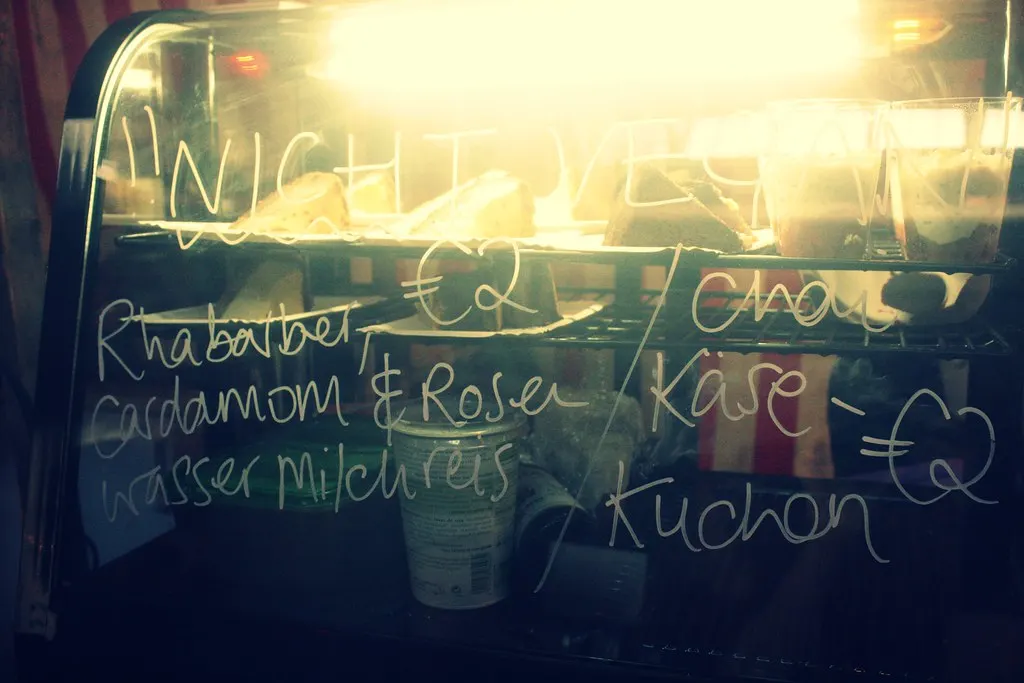 "NICHT VEGAN"
€2
Rhabarber,
Cardamom & Rosen
wasser Milchreis
Chai
Käse-
Kuchen
€2